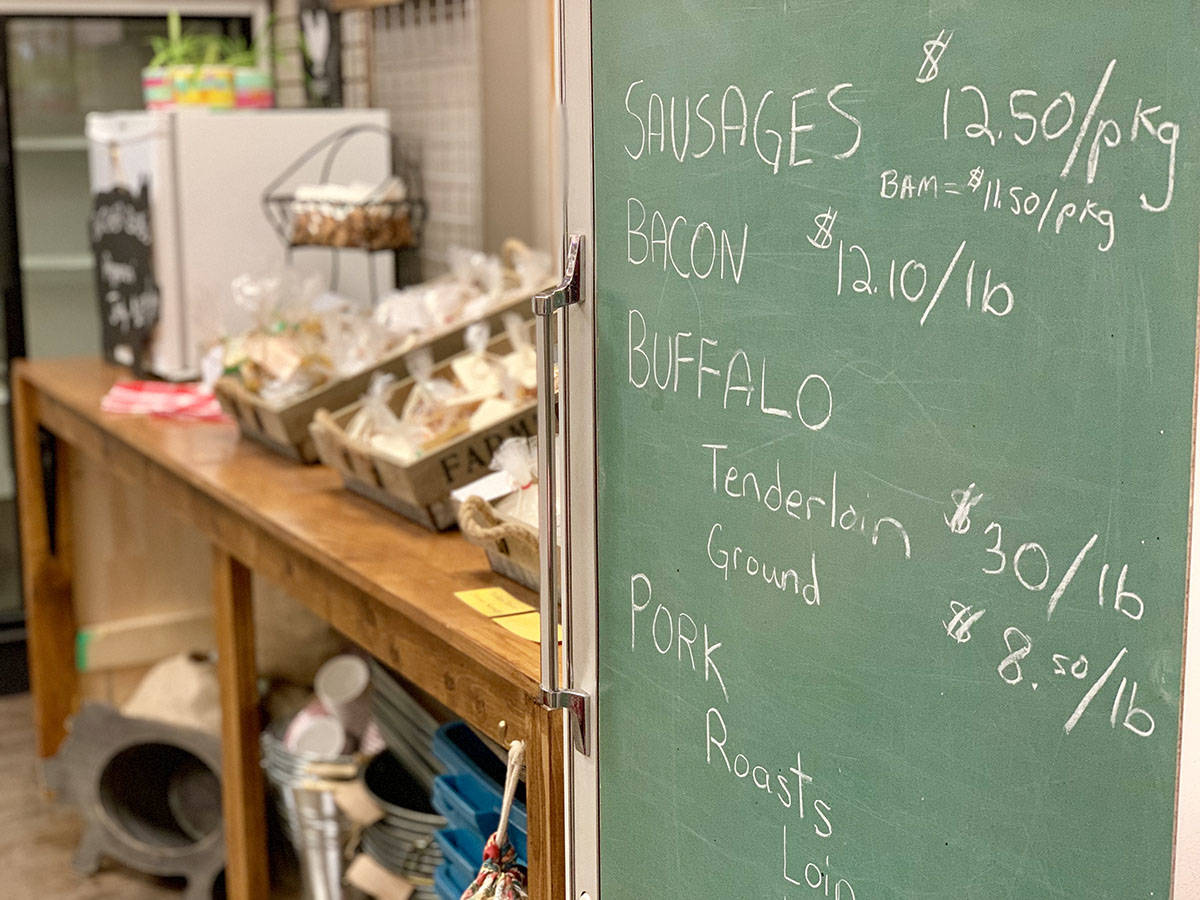 SAUSAGES $12.50/pkg
BAM = $11.50/pkg
BACON $12.10/lb
BUFFALO
Tenderloin $30/lb
Ground $8.50/lb
PORK
Roasts
Loin
FARM